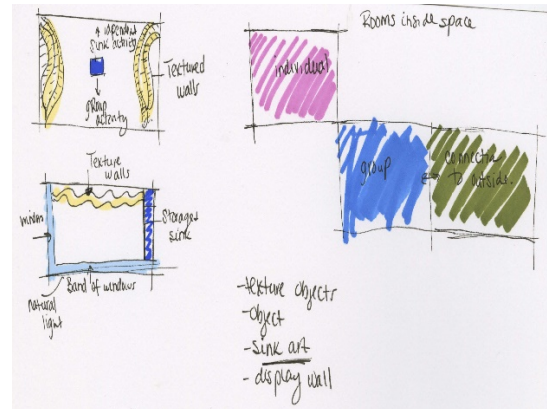 sink activity
group
activity
Textured
walls
Texture walls
Storage &
sink
window
Band of windows
natural
light
Rooms inside space
individual
group
connection
to outside.
-texture objects
-object
-sink art
- display wall